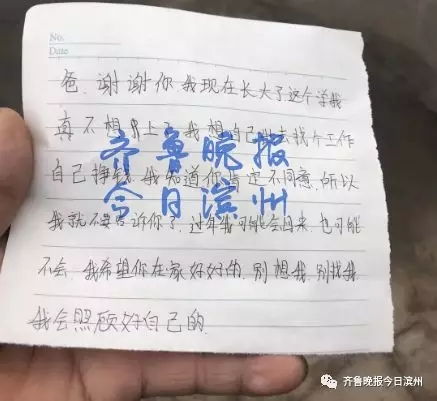 No.
Date
爸.谢谢你 我现在长大了这个学我
真不想再上了我想自己出去找个工作
齐鲁晚报
自己挣钱.我知道你肯定不同意.所以
今日滨州
我就不要告诉你了.过年我可能会回来.也可能
不会.我希望你在家好好的.别想我.别找我.
我会照顾好自己的.
齐鲁晚报今日滨州